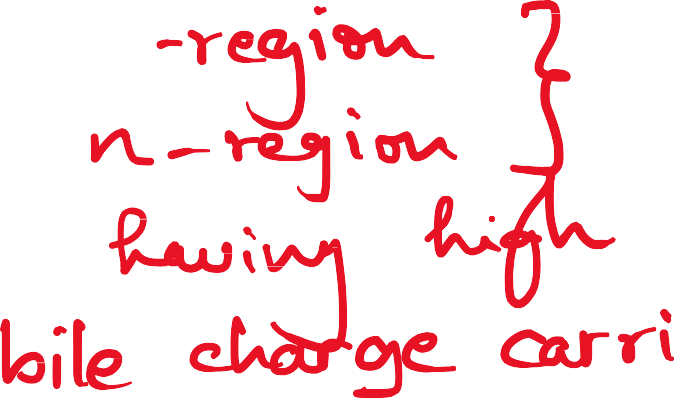 -region }
n-region
having high
bile charge carri